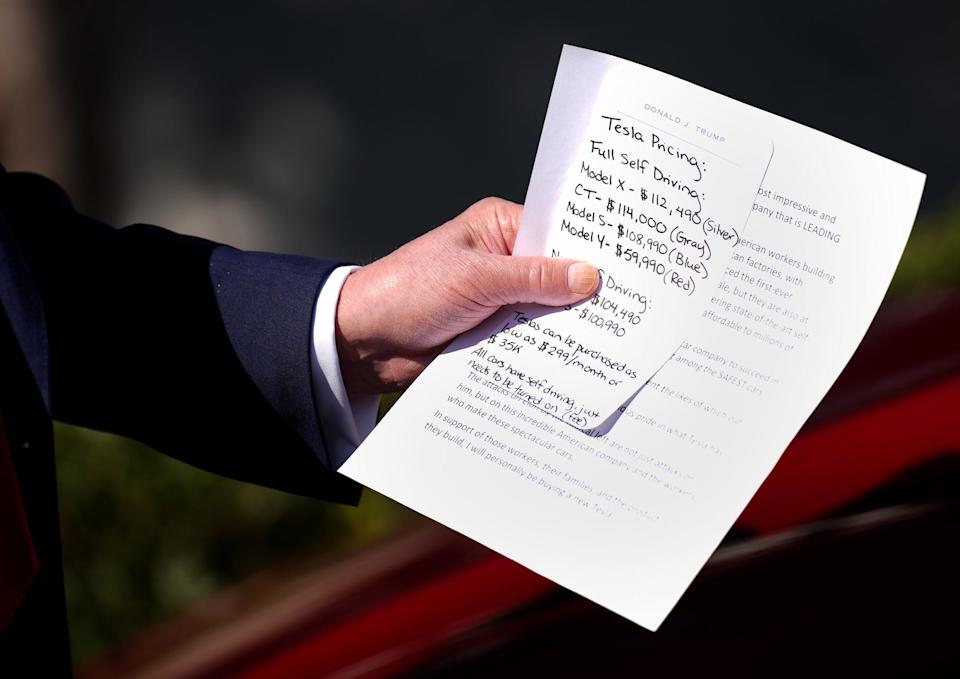 DONALD J. TRUMP
Tesla Pricing:
Full Self Driving:
Model X - $112,490 (Silver)
CT - $114,000 (Gray)
Model S - $108,990 (Blue)
Model Y - $59,990 (Red)
Driving:
$104,490
$100,990
Teslas can be purchased as
low as $299/month or
$35K
All cars have self driving, just
needs to be turned on (fee)
ost impressive and
pany that is LEADING
erican workers building
can factories, with
ced the first-ever
ale, but they are also at
ering state-of-the-art self
affordable to millions of
car company to succeed in
among the SAFEST cars
the likes of which our
pride in what Tesla has
The attacks on left are not just attacks on
him, but on this incredible American company and the workers
who make these spectacular cars.
In support of those workers, their families, and the product
they build, I will personally be buying a new Tesla.